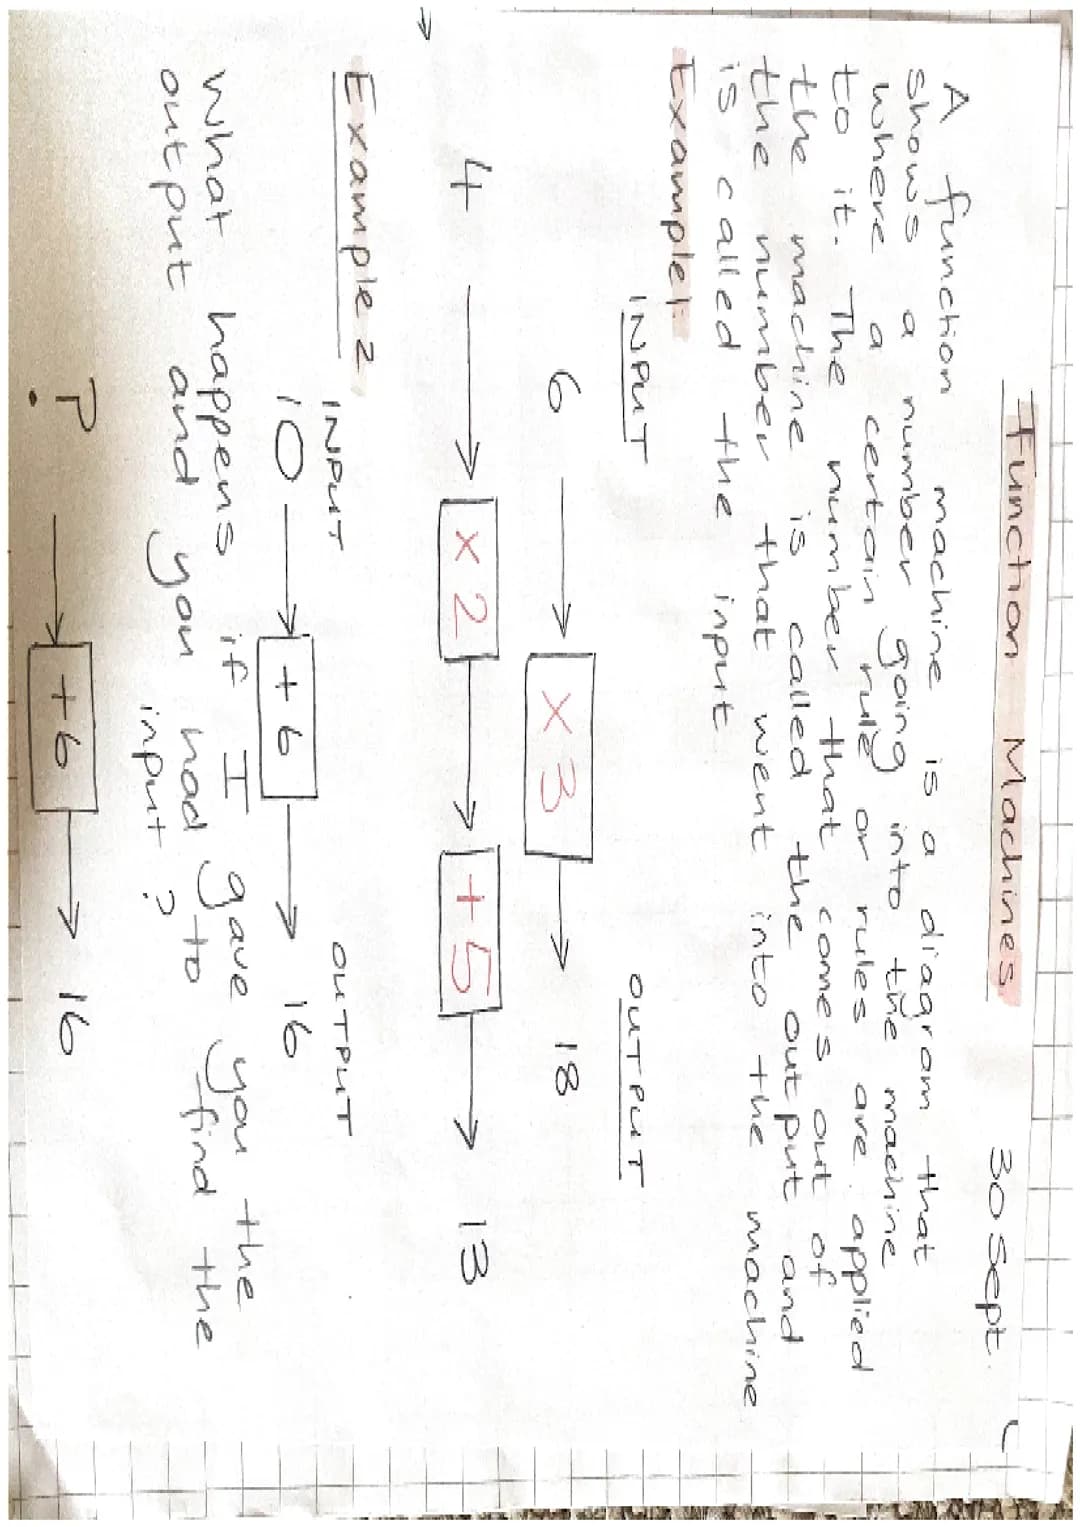 Function Machines 30 Sept.
A function machine is a diagram that
shows a number going into the machine
where a certain rule or rules are applied
to it. The number that comes out of
the machine is called the output and
the number that went into the machine
is called the input
Example1:
INPUT OUTPUT
6 → ×3 → 18
4 → ×2 → +5 → 13
Example 2
INPUT OUTPUT
10 → +6 → 16
what happens if I gave you the
output and you had to find the
input?
? → +6 → 16